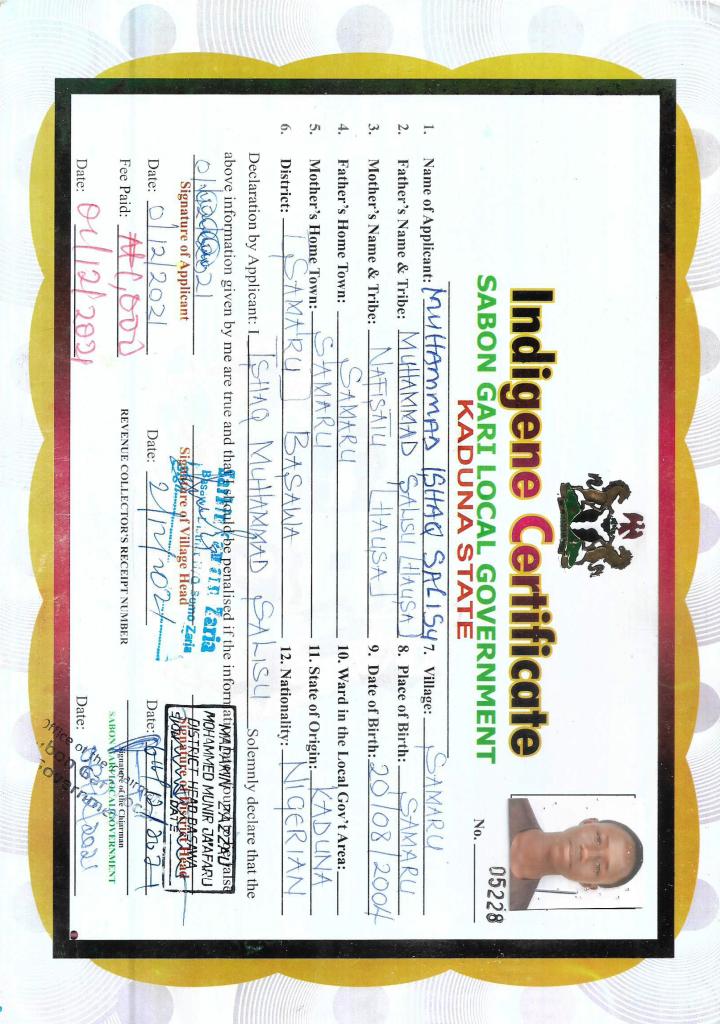 Indigene Certificate
SABON GARI LOCAL GOVERNMENT
KADUNA STATE
No. 05228
1. Name of Applicant: MUHAMMAD ISHAQ SALISU
2. Father's Name & Tribe: MUHAMMAD SALISU (HAUSA)
3. Mother's Name & Tribe: NAFISATU (HAUSA)
4. Father's Home Town: SAMARU
5. Mother's Home Town: SAMARU
6. District: (SAMARU) BASAWA
7. Village: SAMARU
8. Place of Birth: SAMARU
9. Date of Birth: 20/08/2004
10. Ward in the Local Gov't Area:
11. State of Origin: KADUNA
12. Nationality: NIGERIAN
Declaration by Applicant: I ISHAQ MUHAMMAD SALISU Solemnly declare that the
above information given by me are true and that I should be penalised if the information
Signature of Applicant
Date: 01/12/2021
Signature of Village Head
Sarkin Zaria
Zaria
Date: 2/12/2021
Signature of District Head
MADARIN ZAZZAU
MOHAMMED MUNIR JA'AFARU
DISTRICT HEAD BASAWA
DATE
Date:
Fee Paid: ₦1,000
REVENUE COLLECTOR'S RECEIPT NUMBER
Signature of the Chairman
SABON GARI LOCAL GOVERNMENT
Date: 01/12/2021
Date:
Office of the Chairman